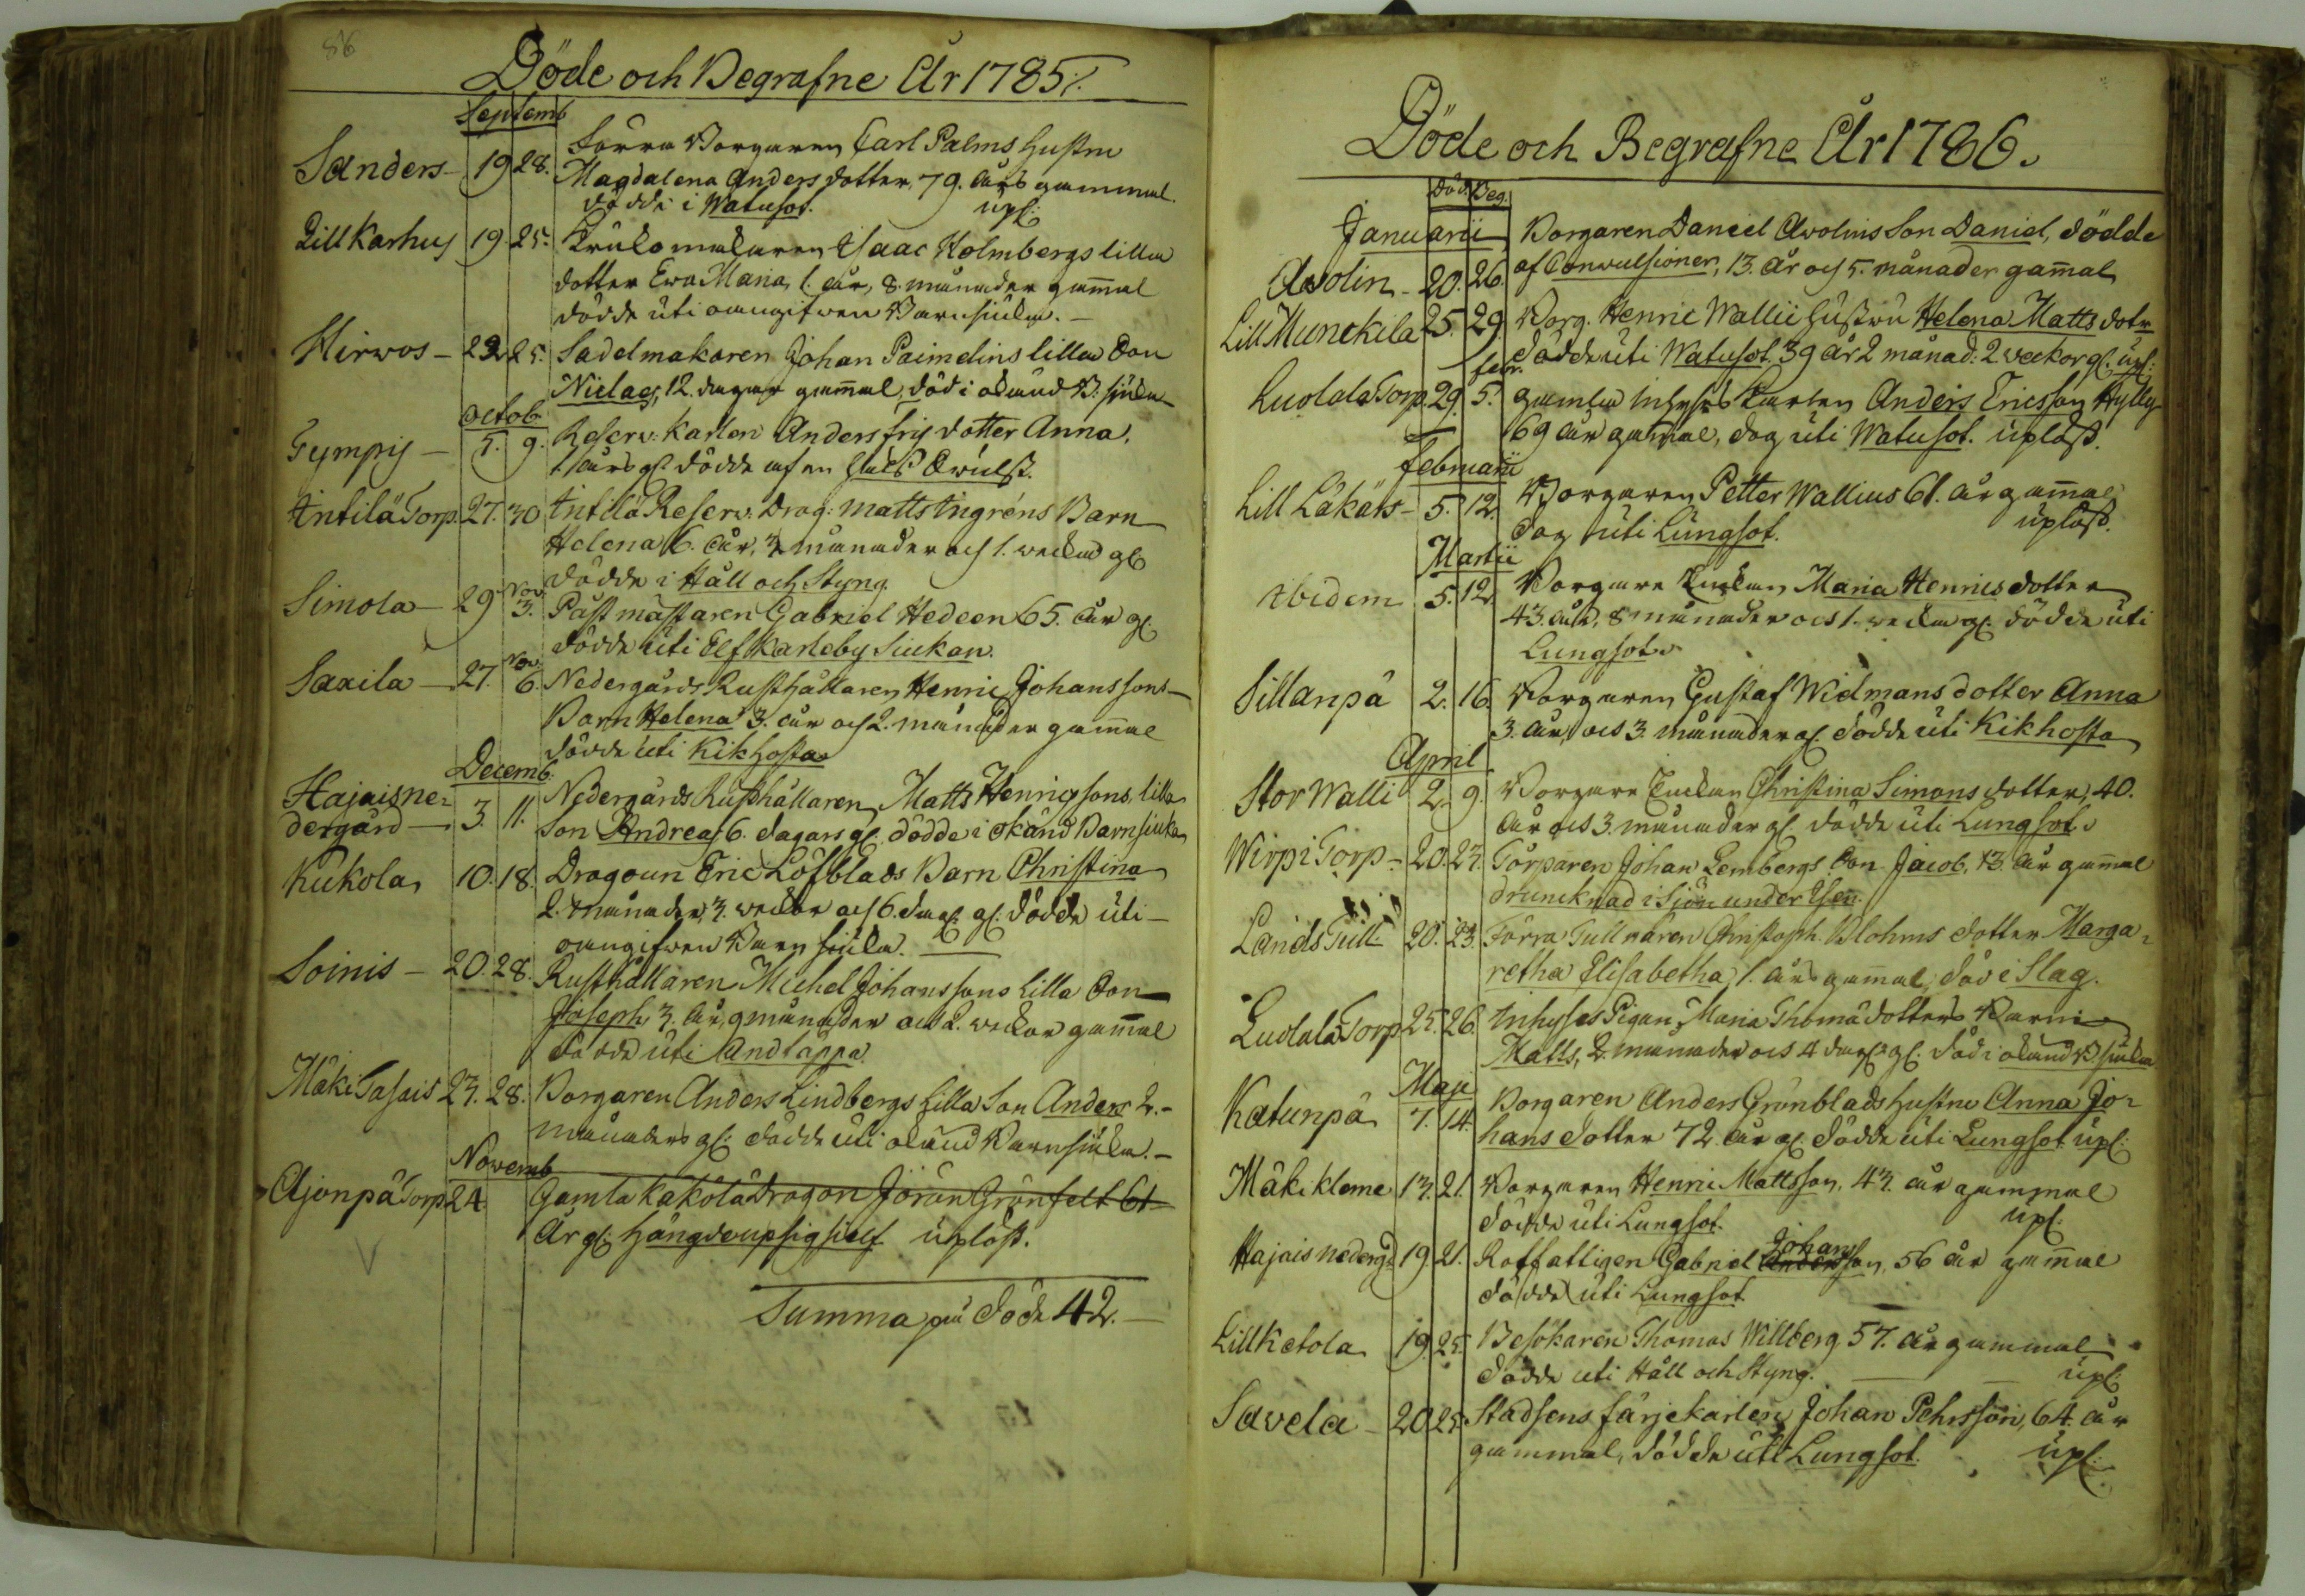 86
Döde och Begrafne År 1785.
Septemb
Sanders 19 28. Förra Borgaren Carl Palms hustru
Magdalena Anders dotter, 79. års gammal.
dödde i Watusot. upl:
Lill Karhus 19. 25. Krukomakaren Isaac Holmbergs lilla
dotter Ewa Maria, 1. år, 8. månader gam̄al
dödde uti oangifwen Barnsiuka.
Hirwos 22 25. Sadelmakaren Johan Paimelins lilla Son
Niclas, 12. dagar gam̄al, död i okänd B: siuka
Octob.
Tympis 5. 9. Reserv: Karlen Anders fris dotter Anna,
1. års gl dödde af en hals Swulst.
Antilä Torp. 27. 30 Antilä Reserv. Drag: Matts Tingréns Barn
Helena 6. år, 3 månader och 1. wecka gl
dödde i Håll och Styng.
Simola 29 Nov. 3. Påstmästaren Gabriel Hedeen 65. år gl:
dödde uti Elfkarleby Siukan.
Saxila 27. Nov. 6. Nedergårds Rusthållaren Henric Johanssons
Barn Helena 3. år och 2. månader gam̄al
dödde uti Kikhosta
Decemb.
Hajais ne=
dergård 3. 11. Nedergårds Rusthållaren Matts Henrigsons lilla
Son Andreas 6. dagars gl: dödde i okänd Barnsiuka
Kukola 10. 18. Dragoun Eric Löfblads Barn Christina
2. månader, 3. weckor och 6. dag: gl: dödde uti
oangifwen Barn siuka.
Soinis 20. 28. Rusthållaren Michel Johanssons Lilla Son
Joseph 3. år, 9 månader och 2. weckor gam̄al
dödde uti Andtäppa.
Mäki Sasais 23. 28. Borgaren Anders Lindbergs Lilla Son Anders 2.
månaders gl: dödde uti okänd Barnsiuka.
Novemb
Ajonpä Torp 24. Gamla Kakola Dragon Jöran Grönfelt 61
År gl: hängde up sig sielf uplöst.
Summa på döde 42.
Döde och Begrafne År 1786.
Död. Beg.
Januarii
Avolin 20. 26. Borgaren Daniel Avolins Son Daniel, dödde
af Convulsioner, 13. år och 5. månader gam̄al
Lill Munckila 25. 29. Borg. Henric Wallii hustru Helena Matts dotr
dödde uti Watusot. 39 år 2 månad: 2 weckor gl. upl:
Luolala Torp. 29. febr. 5. gamla Inhyses Karlen Anders Ericsson Hylly
69 år gammal, dog uti Watusot. uplöst.
februarii
Lill Läkäis 5. 12. Borgaren Petter Wallius 61. år gam̄al
dog uti Lungsot. uplöst.
Martii
Ibidem 5. 12. Borgare Enckan Maria Henrics dotter
43. år, 8 månader och 1. wecka gl. dödde uti
Lungsot.
Sillanpä 2. 16. Borgaren Gustaf Widmans dotter Anna
3. år, och 3. månader gl. dödde uti Kikhosta
April
Stor Walli 2. 9. Borgare Enckan Christina Simons dotter, 40.
år och 3. månader gl. dödde uti Lungsot.
Wirpi Torp 20. 27. Torparen Johan Lembergs Son Jacob, 13. år gam̄al
druncknad i Siön under Isen.
Lands Tull 20. 23. Förra Tullnären Christoph Blohms dotter Marga=
retha Elisabetha, 1. års gam̄al, död i Slag.
Luolala Torp 25. 26. Inhyses Pigan Maria Thomä dotters Barn
Matts, 2. månader och 4 dag:s gl. död i okänd B siuka
Maji
Katunpä 7. 14. Borgaren Anders Grönblads hustru Anna Jo=
hans dotter 72. år gl. dödde uti Lungsot upl:
Mäki kleme 13. 21. Borgaren Henric Mattsson, 43. år gammal
dödde uti Lungsot. upl:
Hajais nedergd 19. 21. Rotfattigen Gabriel Johans Andersson, 56 år gam̄al
dödde uti Lungsot
Lill Ketola 19. 25. Besökaren Thomas Willberg 57. år gammal
dödde uti Håll och Styng. upl:
Savela 20. 25. Stadsens färjekarlen Johan Pehrsson, 64. år
gammal, dödde uti Lungsot. upl: